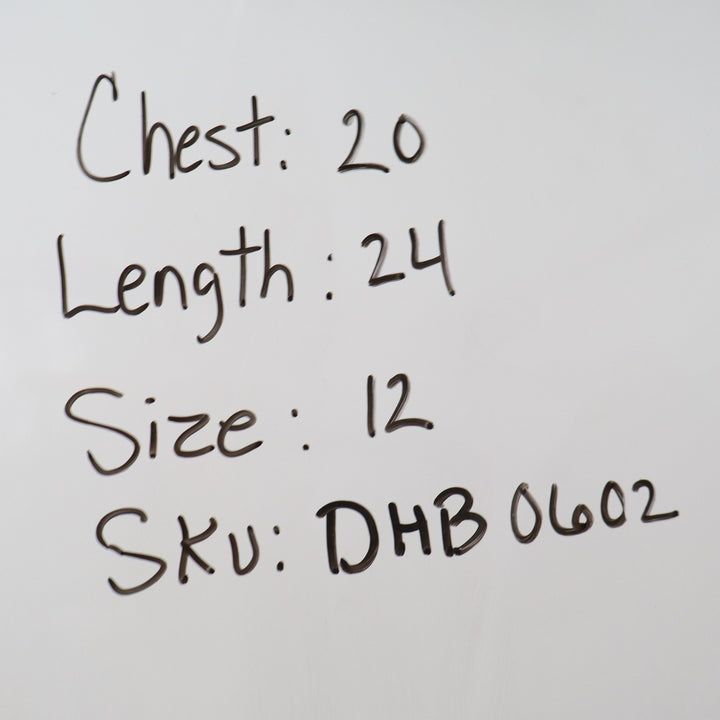 Chest: 20
Length: 24
Size: 12
SKU: DHB 0602